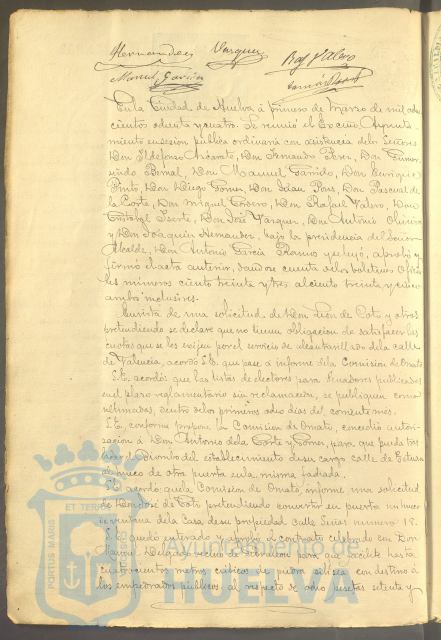 Hernandez Vazquez Raf Valero
Manuel Garrido
En la Ciudad de Huelva á primero de Marzo de mil ocho
cientos ochenta y cuatro. Se reunió el Excmo Ayunta
miento en sesion pública ordinaria con asistencia de los Señores
Don Ildefonso Don Fernando Perez, Don Gume
sindo Bernal, Don Manuel Garrido, Don Enrique
Pinto, Don Diego Don Juan Pons, Don Pascual de
la Corte, Don Miguel Cordero, Don Rafael Valero, Don
Cristobal Don José Vazquez, Don Antonio Oliveira
y Don Joaquin Hernandez, bajo la presidencia del Señor
Alcalde, Don Antonio Garcia Ramos y se leyó, aprobó y
firmó el acta anterior, dandose cuenta de los boletines Oficia
les números ciento treinta y tres al ciento treinta y cinco
ambos inclusives.
En vista de una solicitud de Don de Coto y otros
pretendiendo se declare que no tienen obligacion de satisfacer las
cuotas que se les exijen por el servicio de alcantarillado de la calle
de Valencia, acordó S.E. que pase á informe de la Comision de Ornato.
S.E. acordó que las listas de electores para Senadores publicadas
en el plazo reglamentario sin reclamacion, se publiquen como
ultimadas, dentro de los primeros ocho dias del corriente mes.
S.E. conforme propone la Comision de Ornato, concedió autori-
zacion á Don Antonio de la Corte y Gomez, para que pueda
del establecimiento de su cargo calle de
hueco de otra puerta en la misma fachada.
S.E. acordó que la Comision de Ornato, informe una solicitud
de Don José de Coto pretendiendo convertir en puerta un hueco
de ventana de la Casa de su propiedad calle número 18.
S.E. quedó enterado y aprobó el contrato celebrado con Don
Manuel Delgado, vecino de para que facilite hasta
cuatrocientos metros cúbicos de piedra con destino á
los empedrados públicos, al respecto de ocho pesetas setenta y
ET TERRE
PORTUS MARIS
Ayuntamiento de
HUELVA